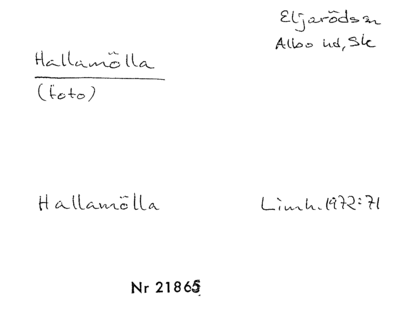 Eljarödssn
Albo hd, Sk
Hallamölla
(foto)
Hallamölla Limh. 1972:71
Nr 21865